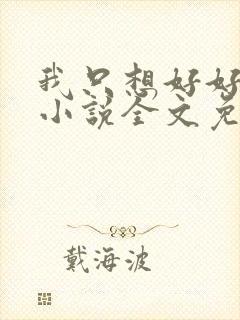 我只想好好
小说全文免
戴海波